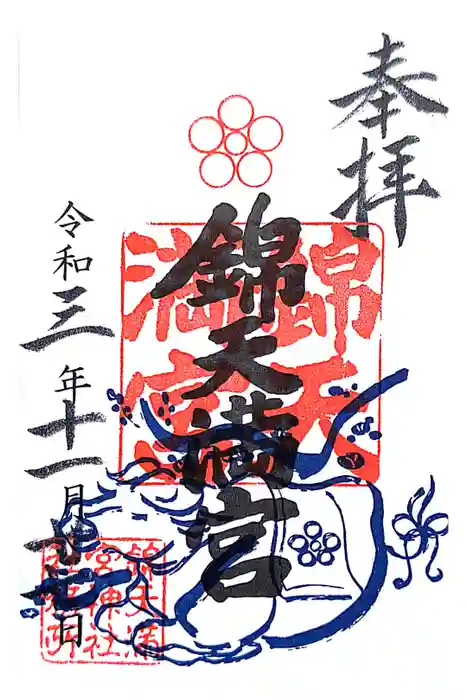 奉拝
錦天満宮
錦天
満宮
令和三年十一月
日
錦天満
宮神社